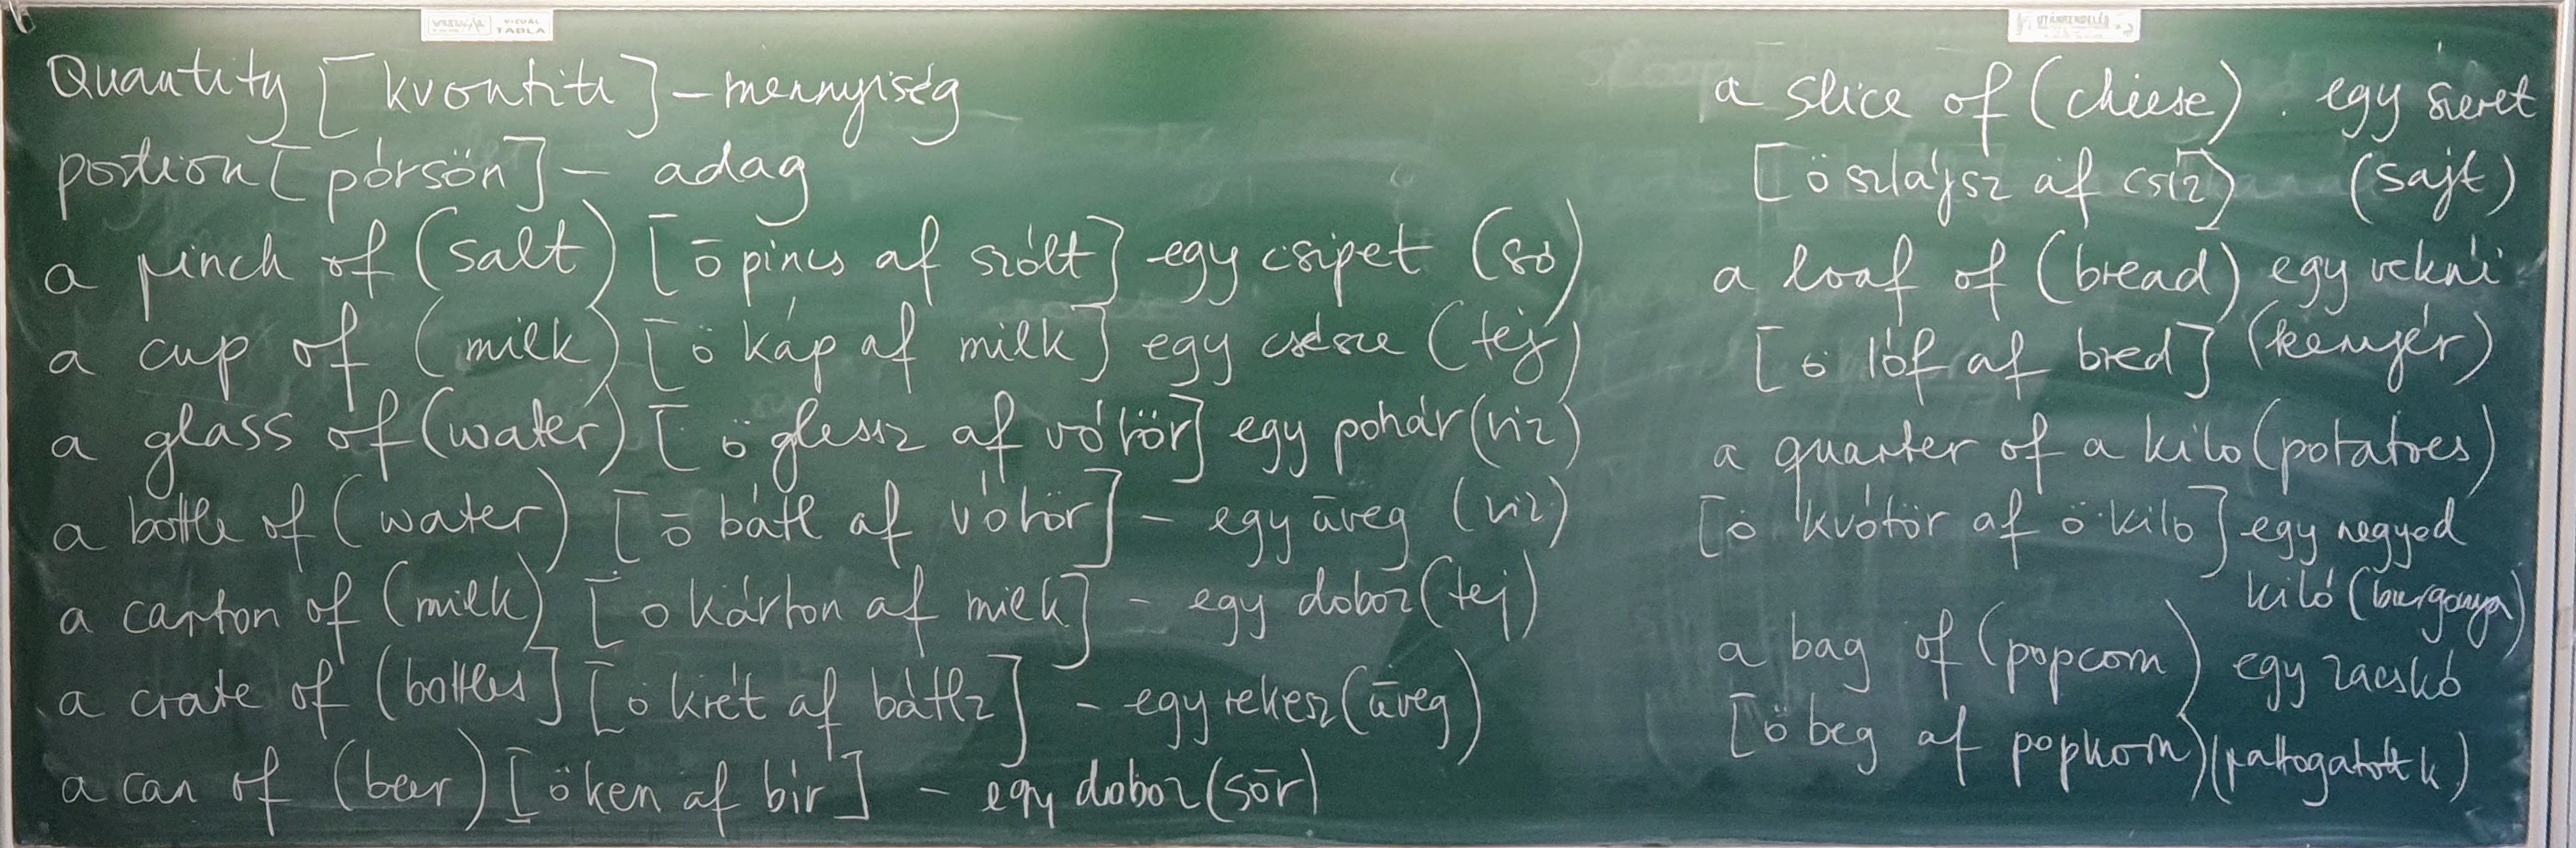 VISUAL
TABLA
Quantity [kvontiti] - mennyiség
portion [pórsön] - adag
a pinch of (salt) [ö pincs af szólt] egy csipet (só)
a cup of (milk) [ö káp af milk] egy csésze (tej)
a glass of (water) [ö glessz af vótör] egy pohár (víz)
a bottle of (water) [ö bátl af vótör] - egy üveg (víz)
a carton of (milk) [ö kárton af milk] - egy doboz (tej)
a crate of (bottles] [ö krét af bátlz] - egy rekesz (üveg)
a can of (beer) [ö ken af bír] - egy doboz (sör)
a slice of (cheese) egy szelet
[ö szlájsz af csíz] (sajt)
a loaf of (bread) egy vekni
[ö lóf af bred] (kenyér)
a quarter of a kilo (potatoes)
[ö kvótör af ö kiló] egy negyed
kiló (burgonya)
a bag of (popcorn) egy zacskó
[ö beg af popkorn) (pattogatott k)